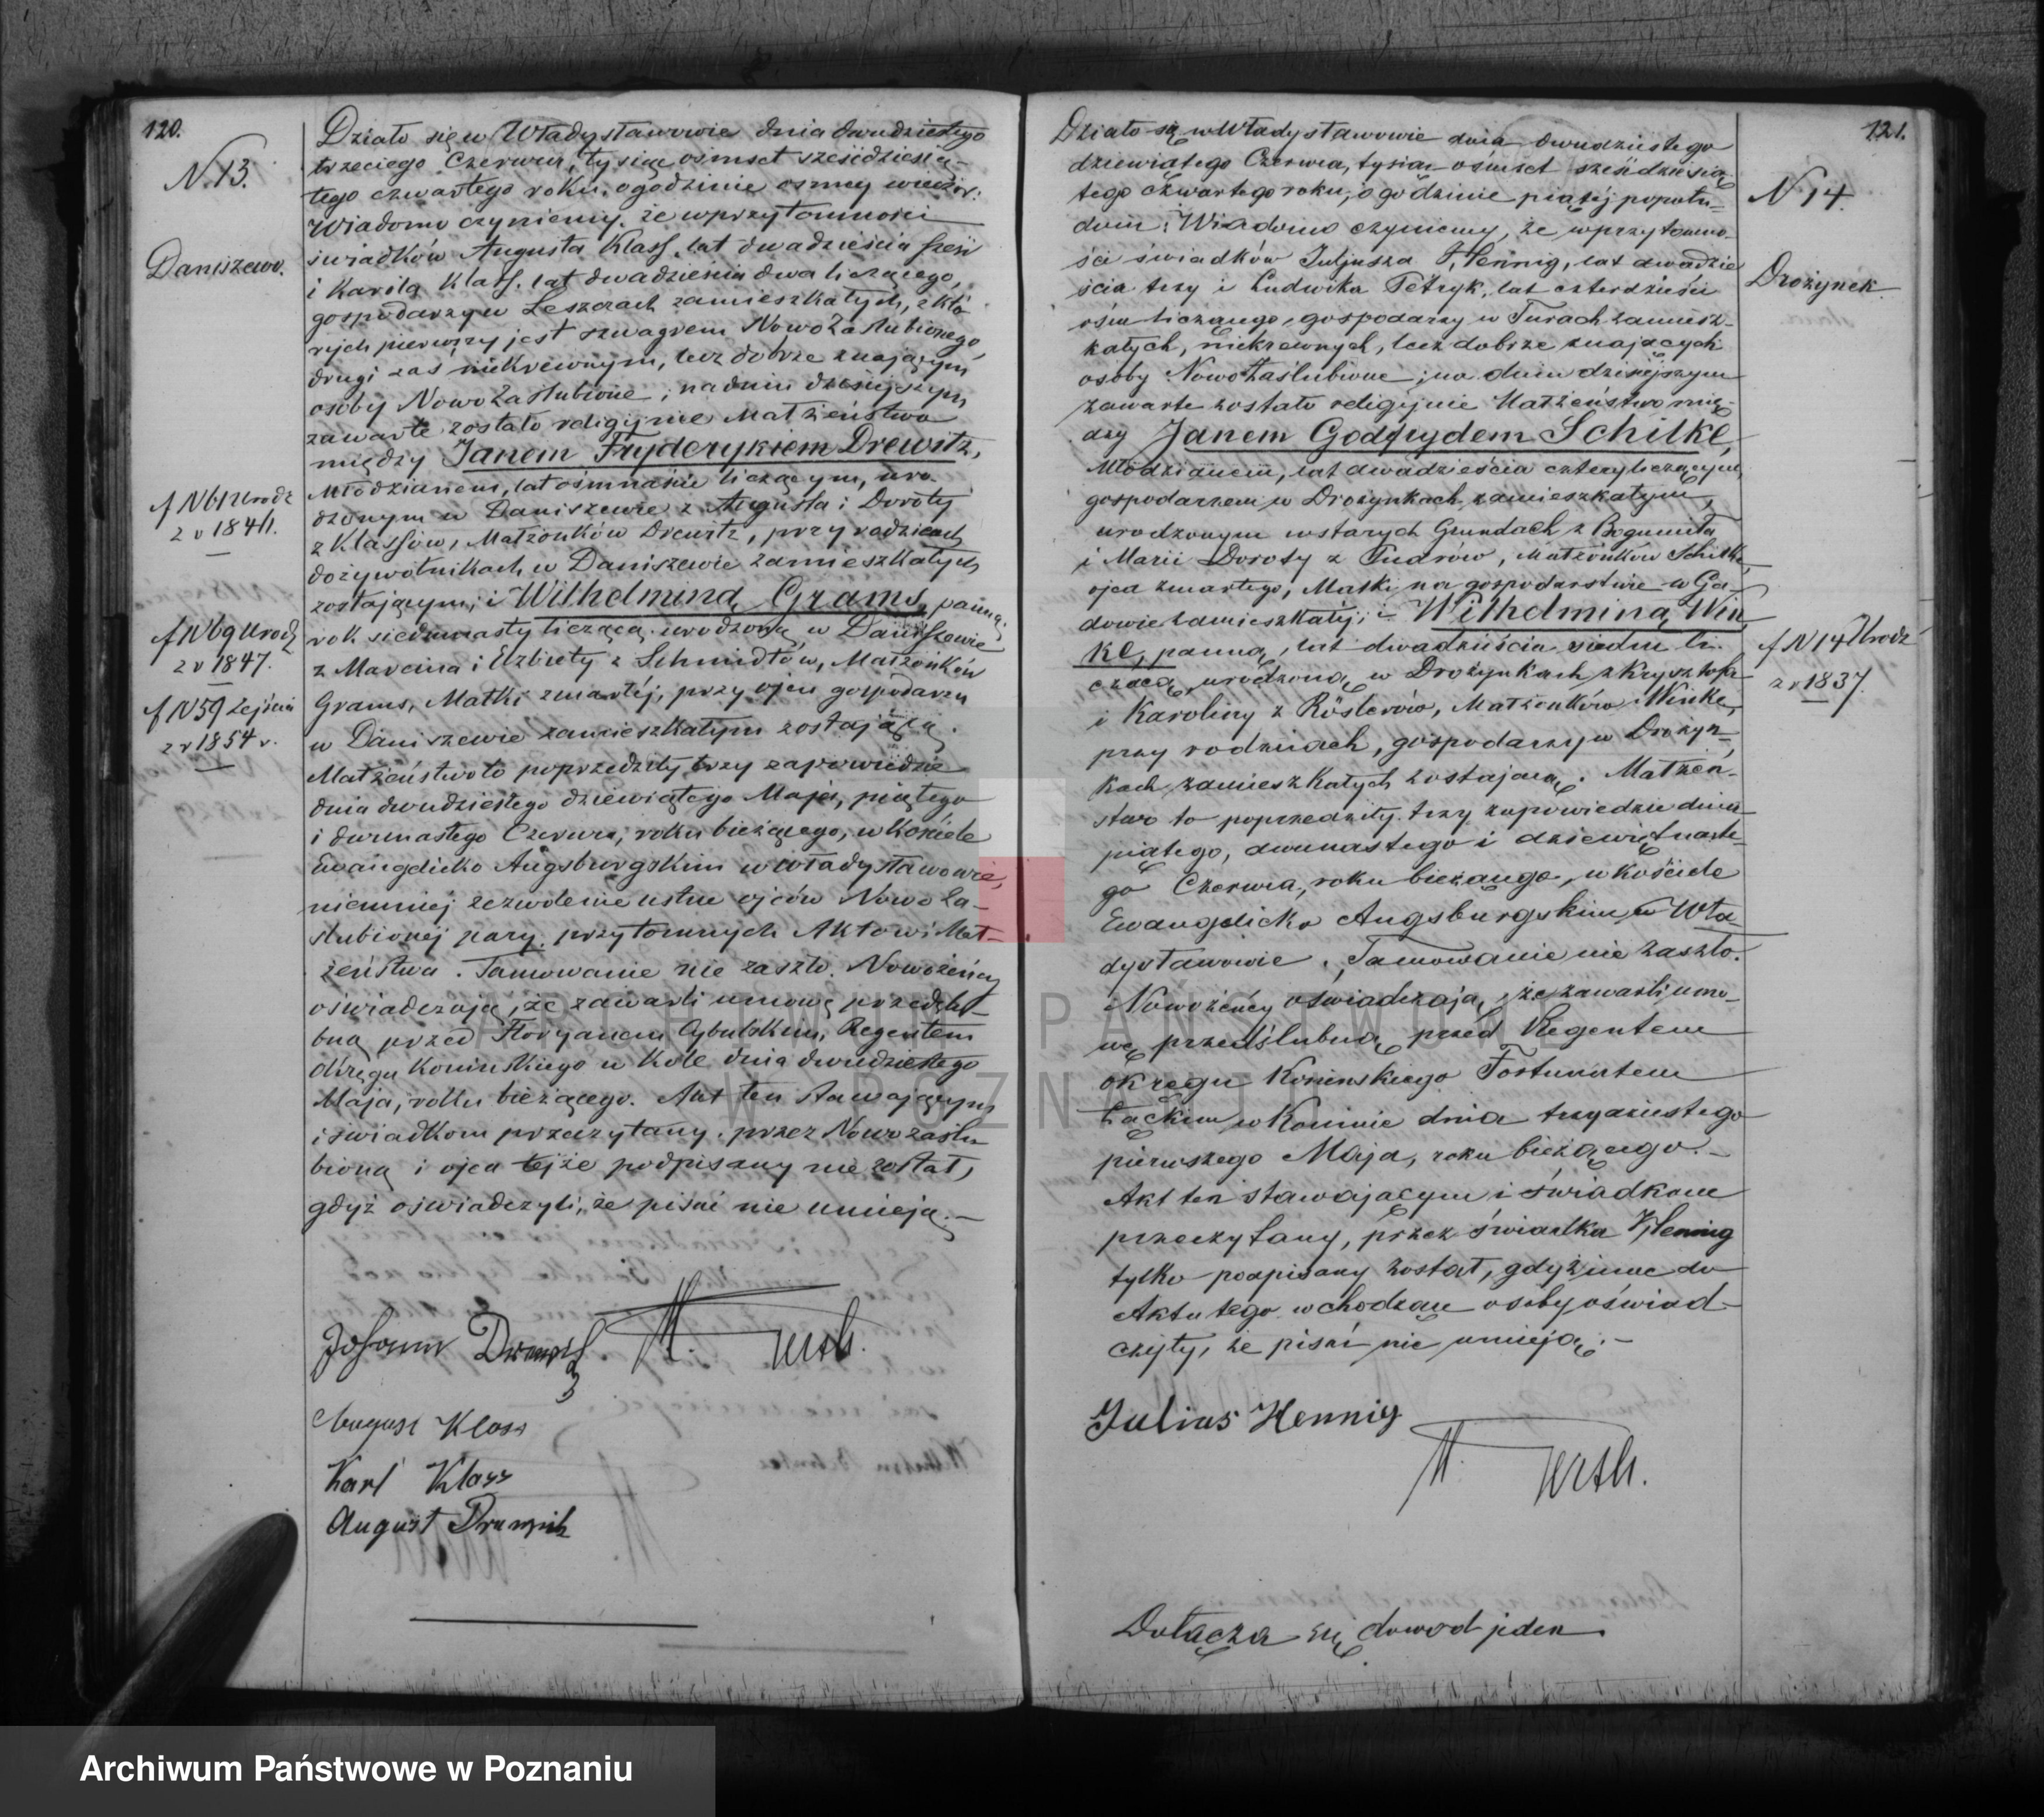 120.
N. 13.
Daniszewo.
f N 61 Urodz
z r 1846.
f N 69 Urodz
z r 1847.
f N 59 Zejścia
z r 1854 r.
Działo się w Władysławowie dnia dwudziestego
trzeciego Czerwca, tysiąc ośmset sześćdziesią-
tego czwartego roku, o godzinie osmey wieczor:
Wiadomo czyniemy, że w przytomności
świadków Augusta Klass, lat dwadzieścia sześć
i Karola Klass, lat dwadzieścia dwa liczącego,
gospodarzy w Leszczach zamieszkałych, z któ-
rych pierwszy jest szwagrem Nowozaślubionego,
drugi zaś niekrewnym, lecz dobrze znającym
osoby Nowozaślubione; na dniu dzisiejszym
zawarte zostało religijne Małżeństwo
między Janem Fryderykiem Drewitz,
Młodzianem, lat ośmnaście liczącym, uro-
dzonym w Daniszewie z Augusta i Doroty
z Klassów, Małżonków Drewitz, przy rodzicach
dożywotnikach w Daniszewie zamieszkałych
zostającym; i Wilhelminą Grams, panną,
rok siedmnasty liczącą, urodzoną w Daniszewie
z Marcina i Elżbiety z Schmidtów, Małżonków
Grams, Matki zmarłej, przy ojcu gospodarzu
w Daniszewie zamieszkałym zostającą.
Małżeństwo to poprzedziły trzy zapowiedzie
dnia dwudziestego dziewiątego Maja, piątego
i dwunastego Czerwca, roku bieżącego, w Kościele
Ewangelicko Augsburgskim w Władysławowie,
niemniej zezwolenie ustne ojców Nowoza-
ślubionej pary, przytomnych Aktowi Mał-
żeństwa. Tamowanie nie zaszło. Nowożeńcy
oświadczają, że zawarli umowę przedślu-
bną przed Floryanem Cybulskim, Regentem
okręgu Konińskiego w Kole dnia dwudziestego
Maja, roku bieżącego. Akt ten stawającym
i świadkom przeczytany, przez Nowozaślu-
bioną i ojca tejże podpisany nie został,
gdyż oświadczyli, że pisać nie umieją.
Johann
August Klass
Karl Klass
August
121.
N 14.
Drożynek
f N 14 Urodz
z r 1837.
Działo się w Władysławowie dnia dwudziestego
dziewiątego Czerwca, tysiąc ośmset sześćdziesią-
tego czwartego roku, o godzinie piątej popołu-
dniu. Wiadomo czyniemy, że w przytomno-
ści świadków Juljusza Hennig, lat dwadzie
ścia trzy i Ludwika Petryk, lat czterdzieści
ośm liczącego, gospodarzy w Turach zamiesz-
kałych, niekrewnych, lecz dobrze znających
osoby Nowozaślubione; na dniu dzisiejszym
zawarte zostało religijnie Małżeństwo mię-
dzy Janem Godfrydem Schilke,
Młodzianem, lat dwadzieścia cztery liczącym,
gospodarzem w Drożynkach zamieszkałym,
urodzonym w starych Grundach z Bogumiła
i Marii Doroty z Tudrów, Małżonków Schilke,
ojca zmarłego, Matki na gospodarstwie w Ga-
dowie zamieszkałej; i Wilhelminą Win
ke, panną, lat dwadzieścia siedm li-
czącą, urodzoną w Drożynkach z Krysztofa
i Karoliny z Röslerów, Małżonków Winke,
przy rodzicach, gospodarzy w Drożyn-
kach zamieszkałych zostającą. Małżeń-
stwo to poprzedziły trzy zapowiedzie dnia
piątego, dwunastego i dziewiętnaste-
go Czerwca, roku bieżącego, w Kościele
Ewangelicko Augsburgskim w Wła
dysławowie. Tamowanie nie zaszło.
Nowożeńcy oświadczają, że zawarli umo-
wę przedślubną przed Regentem
okręgu Konińskiego Fortunatem
Łąckim w Koninie dnia trzydziestego
pierwszego Maja, roku bieżącego.
Akt ten stawającym i świadkom
przeczytany, przez świadka Hennig
tylko podpisany został, gdyż inne do
Aktu tego wchodzące osoby oświad-
czyły, że pisać nie umieją.
Julius Hennig
Dołącza się dowod jeden.
ARCHIWUM PAŃSTWOWE
W POZNANIU
Archiwum Państwowe w Poznaniu